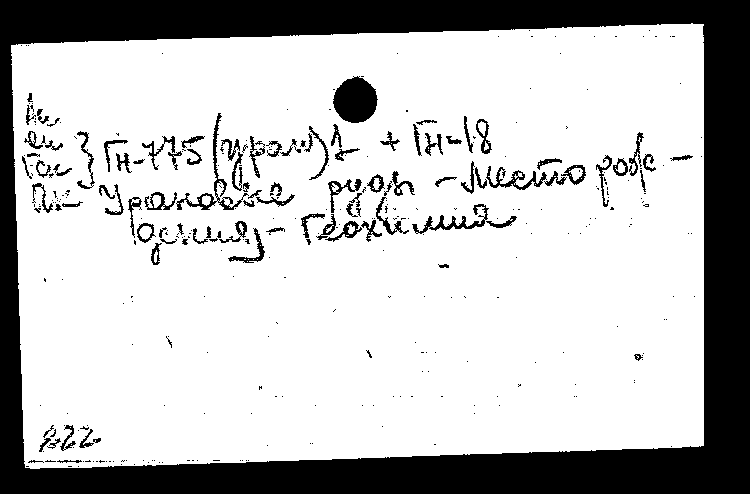 Ан
ен
Гас } Гн-775 (уран) 1 + Гн-18
ПК Урановые руды - Месторож-
дения - Геохимия
822